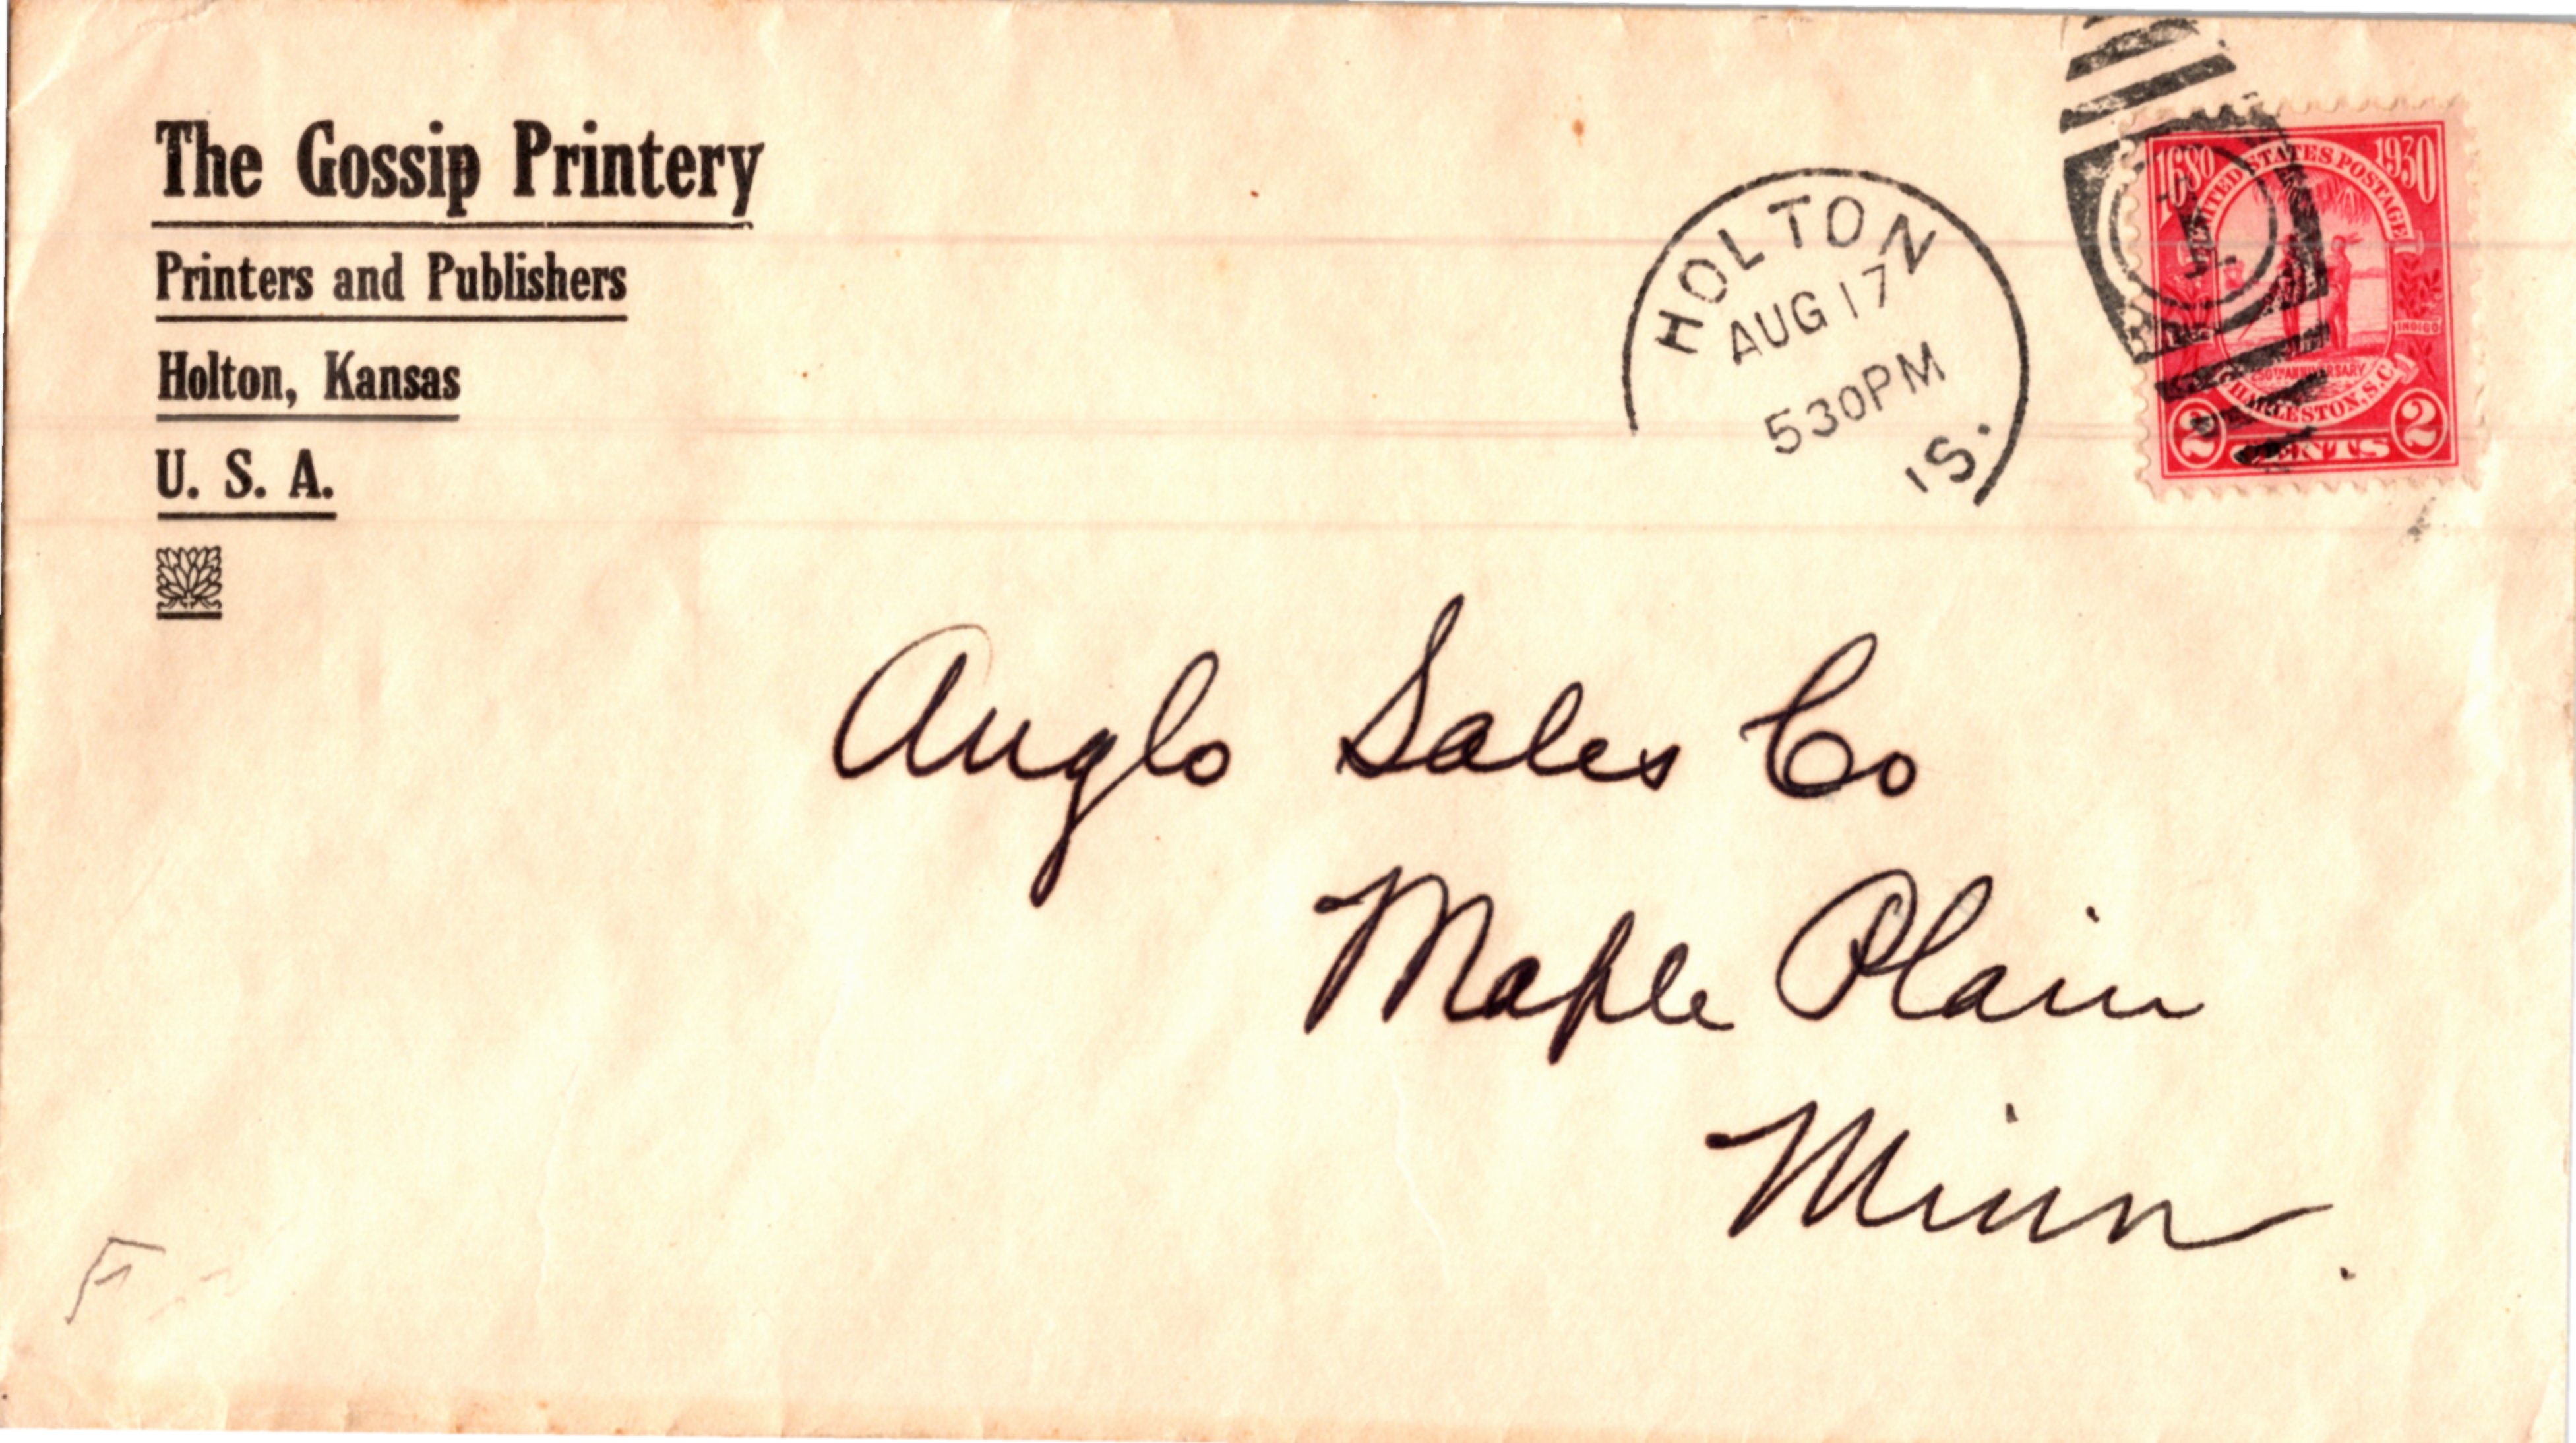 The Gossip Printery
Printers and Publishers
Holton, Kansas
U. S. A.
HOLTON
AUG 17
530PM
IS.
1680 1930
UNITED STATES POSTAGE
INDIGO
250TH ANNIVERSARY
CHARLESTON, S.C.
2 CENTS 2
Anglo Sales Co
Maple Plain
Minn.
F